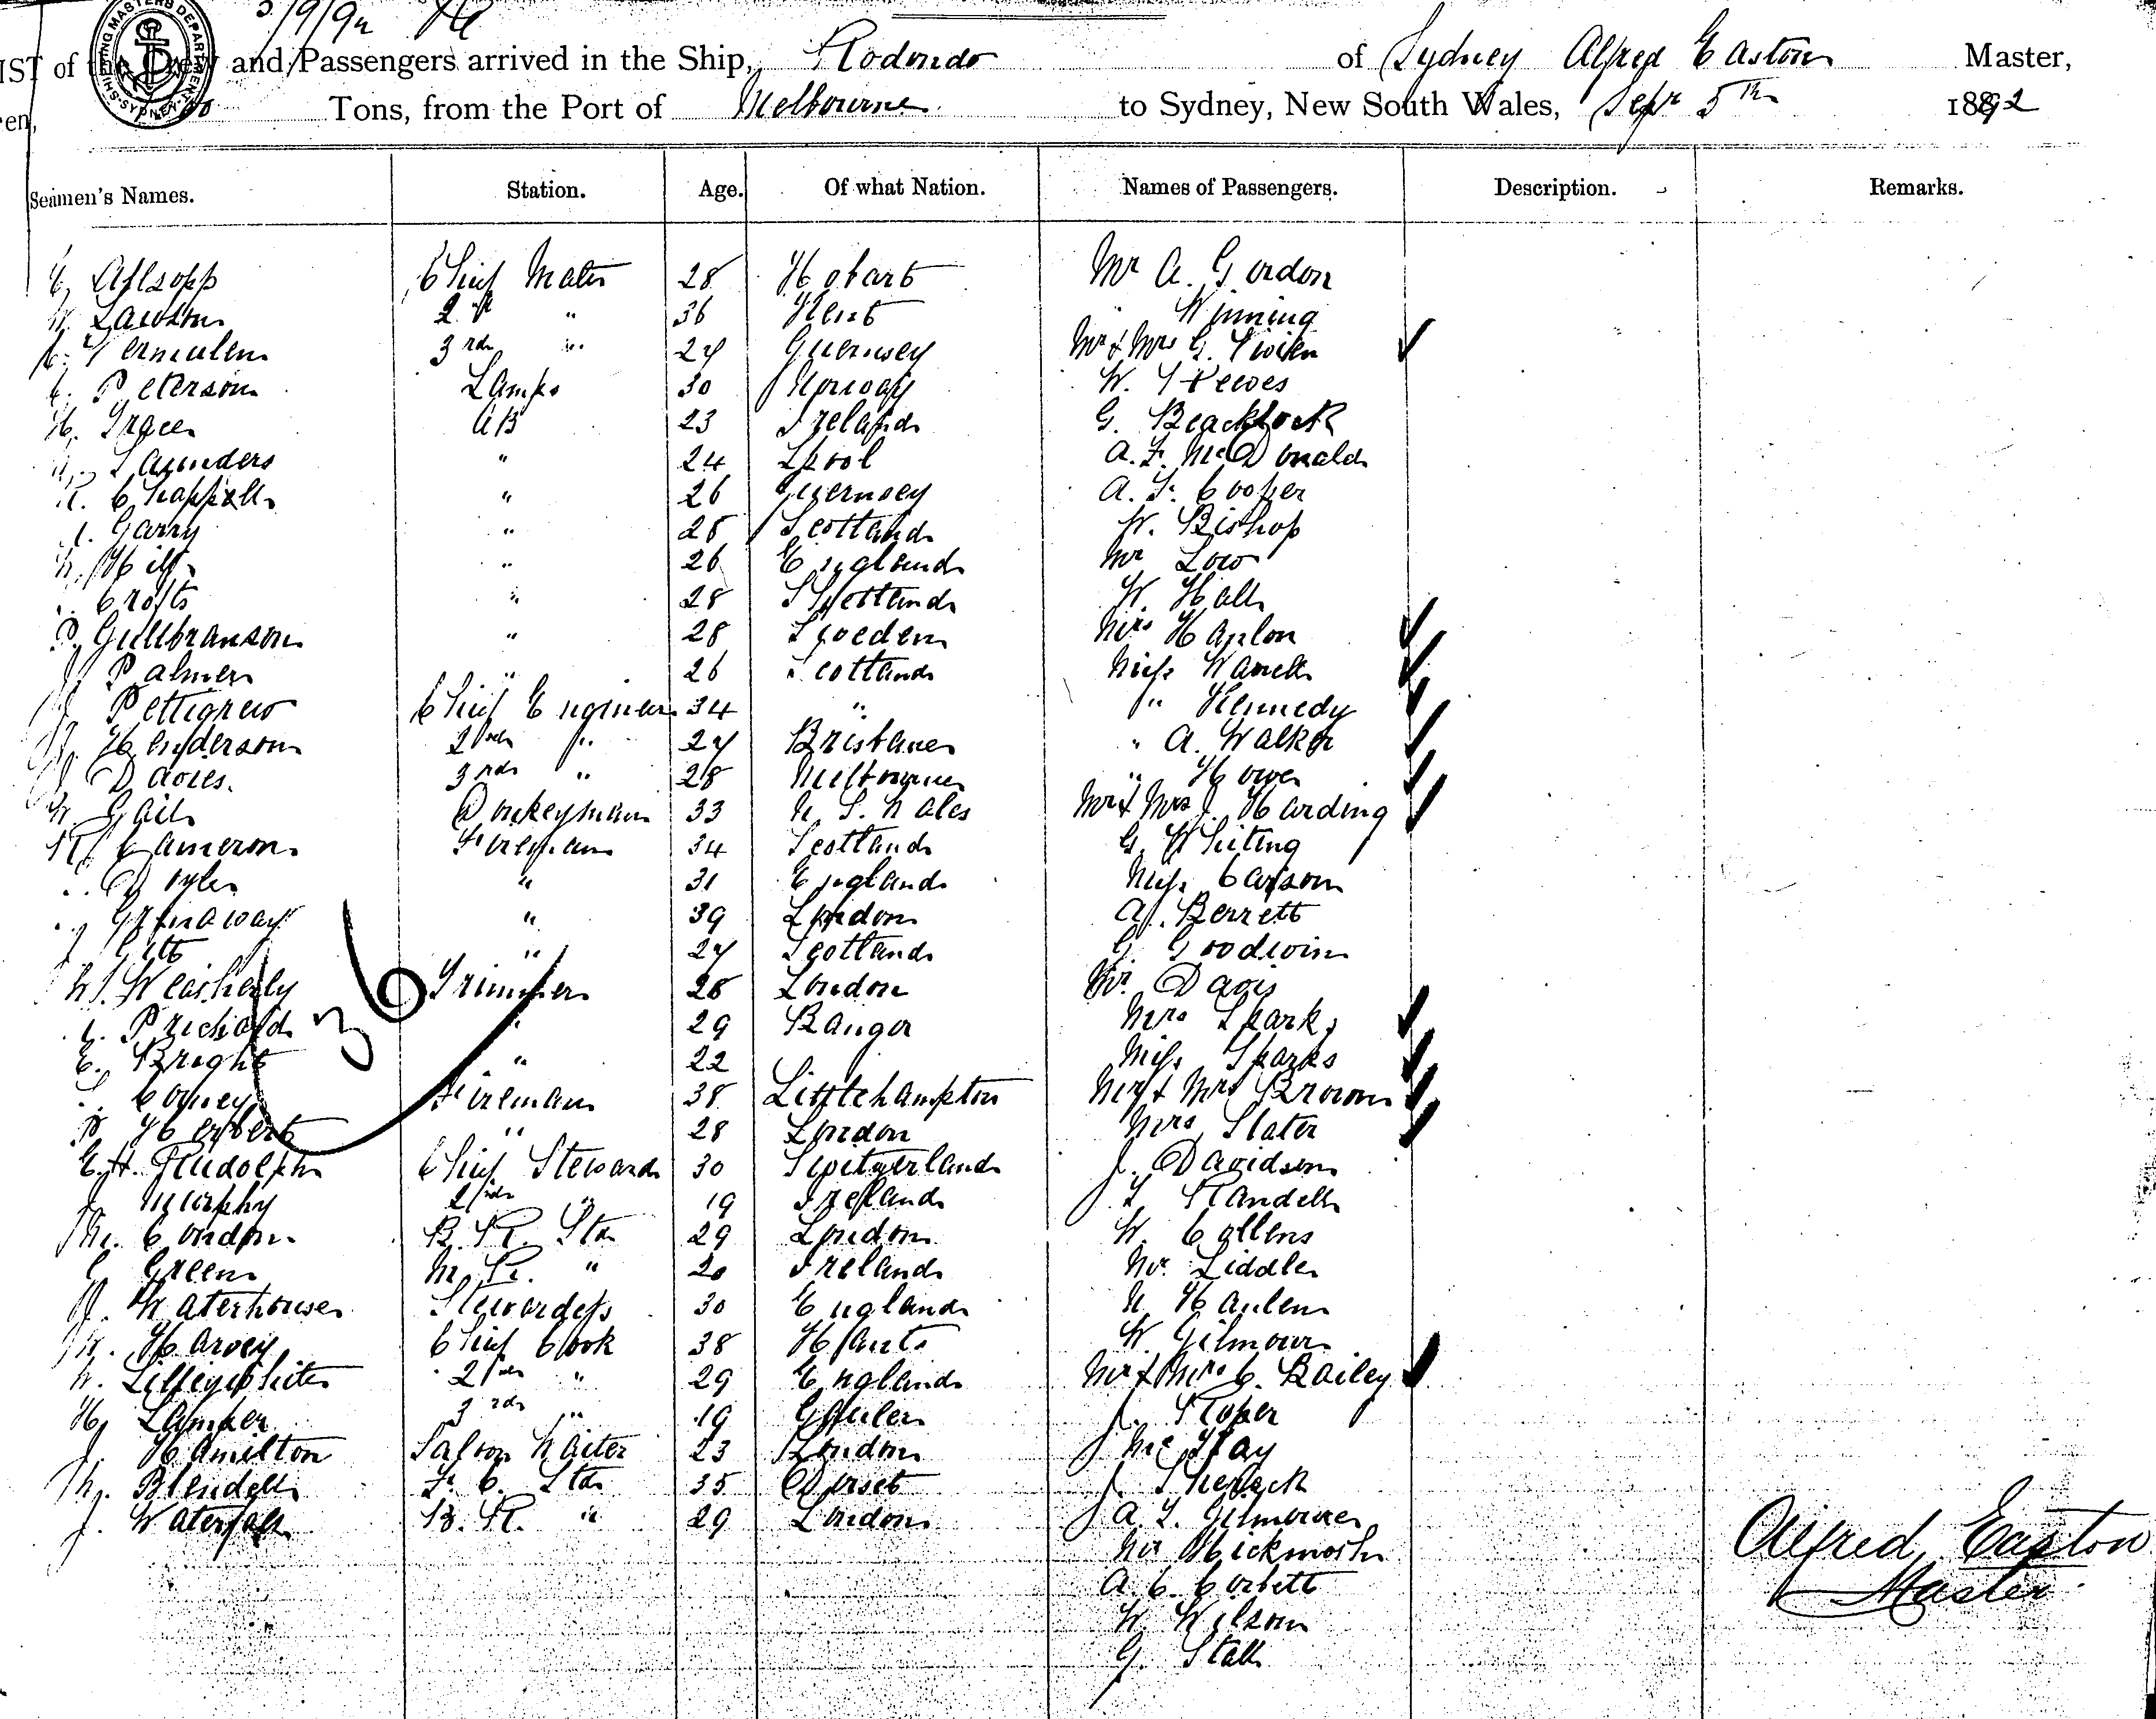 5/9/92
LIST of the Crew and Passengers arrived in the Ship, Rodondo of Sydney Alfred Easton Master,
Tons, from the Port of Melbourne to Sydney, New South Wales, Sepr 5th 1892
SHIPPING MASTERS DEPARTMENT SYDNEY
Seamen's Names. Station. Age. Of what Nation. Names of Passengers. Description. Remarks.
Allsopp Chief Mate 28 Hobart Mr A. Gordon
Lawson 2nd " 36 Kent " Winning
Vermeulen 3rd " 24 Guernsey Mr & Mrs G.
C. Peterson Lamps 30 Norway W.
H. Grace AB 23 Ireland G. Blacklock
Saunders " 24 Lpool A. F. McDonald
Chappell " 26 Guernsey A. F. Cooper
Garry " 28 Scotland W. Bishop
Hill " 26 England Mr Low
Crofts " 28 Shetland W. Hall
P. Gullbranson " 28 Sweden Mrs Hanlon
Palmer " 26 Scotland Miss
Pettigrew Chief Engineer 34 " " Kennedy
Henderson 2nd " 24 Brisbane " A. Walker
Davies. 3rd " 28 Melbourne " Howe
Gail Donkeyman 33 N. S. Wales Mr & Mrs J. Harding
Cameron Fireman 34 Scotland G. Whiting
Doyle " 31 England Miss Carson
Grinaway " 39 London A. Berrett
" 24 Scotland G. Goodwin
Weatherly Trimmer 28 London Mr. Davis
Prichold " 29 Bangor Mrs Spark
E. Bright " 22 Miss Sparks
Corney Fireman 38 Littlehampton Mr & Mrs Brown
Herbert " 28 London Mrs Slater
E. H. Rudolph Chief Steward 30 Switzerland J. Davidson
J. Murphy 2nd " 19 Ireland T Randell
Condon B. R. Std 29 London W. Collens
Green M. R. " 20 Ireland Mr. Liddle
Waterhouse Stewardess 30 England
Harvey Chief Cook 38 Hants W. Gilmour
W. Lillywhite 2nd " 29 England Mr & Mrs C. Bailey
H. 3rd " 19 J. Roper
J. Hamilton Saloon Waiter 23 London J McKay
Blendell F. C. Std 35 Dorset J.
J. Waterfall B. R. " 29 London A. T. Gilmour
Mr
A. C. Corbett
W. Wilson
G. Stall
36
Alfred Easton
Master